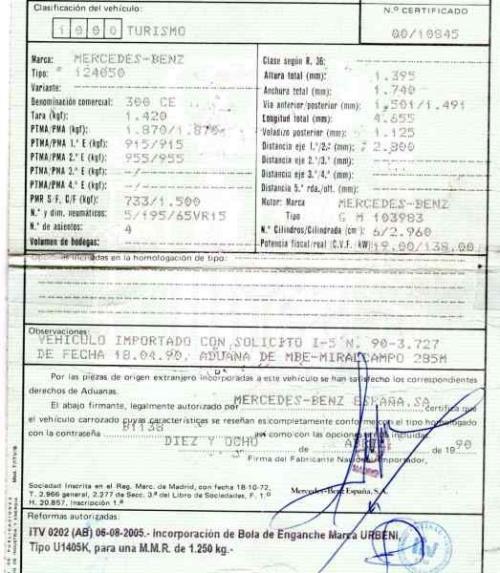 Clasificación del vehículo:
1 0 0 0 TURISMO
N.º CERTIFICADO
00/10845
Marca: MERCEDES-BENZ
Tipo: 124050
Variante:
Denominación comercial: 300 CE
Tara (kgf): 1.420
PTMA/PMA (kgf): 1.870/1.870
PTMA/PMA 1.º E (kgf): 915/915
PTMA/PMA 2.º E (kgf): 955/955
PTMA/PMA 3.º E (kgf): -/-
PTMA/PMA 4.º E (kgf): -/-
PMR S/F, C/F (kgf): 733/1.500
N.º y dim. neumáticos: 5/195/65VR15
N.º de asientos: 4
Volumen de bodegas:
Clase según R. 36:
Altura total (mm): 1.395
Anchura total (mm): 1.740
Vía anterior/posterior (mm): 1.501/1.491
Longitud total (mm): 4.655
Voladizo posterior (mm): 1.125
Distancia eje 1.º/2.º (mm): 2.800
Distancia eje 2.º/3.º (mm):
Distancia eje 3.º/4.º (mm):
Distancia 5.ª rda./últ. (mm):
Motor: Marca MERCEDES-BENZ
Tipo G M 103983
N.º Cilindros/Cilindrada (cm³): 6/2.960
Potencia fiscal/real (C.V.F./kW) 19.00/138.00
Opciones incluidas en la homologación de tipo:
Observaciones:
VEHICULO IMPORTADO CON SOLICITO I-5 N. 90-3.727
DE FECHA 18.04.90, ADUANA DE MBE-MIRALCAMPO 285M
Por las piezas de origen extranjero incorporadas a este vehículo se han satisfecho los correspondientes
derechos de Aduanas.
El abajo firmante, legalmente autorizado por MERCEDES-BENZ ESPAÑA, SA certifica que
el vehículo carrozado cuyas características se reseñan es completamente conforme con el tipo homologado
con la contraseña B1138 así como con las opciones incluidas.
DIEZ Y OCHO de de 19 90
Firma del Fabricante Nacional o Importador,
Mercedes-Benz España, S.A.
Sociedad Inscrita en el Reg. Merc. de Madrid, con fecha 18-10-72,
T. 2.966 general, 2.277 de Secc. 3.ª del Libro de Sociedades, F. 1.º
H. 20.857, Inscripción 1.ª
Reformas autorizadas:
ITV 0202 (AB) 06-08-2005.- Incorporación de Bola de Enganche Marca URBENI,
Tipo U1405K, para una M.M.R. de 1.250 kg.-
ITV